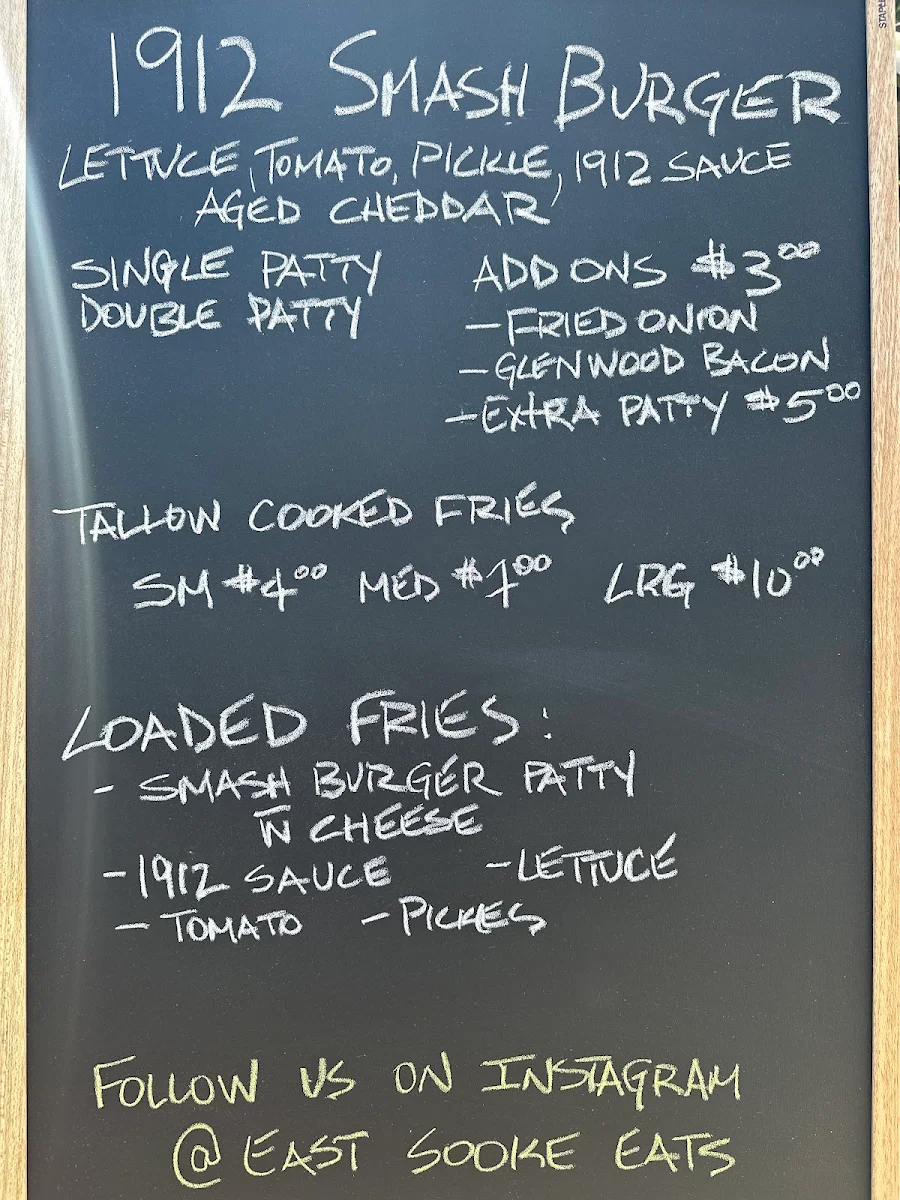 1912 SMASH BURGER
LETTUCE, TOMATO, PICKLE, 1912 SAUCE
AGED CHEDDAR
SINGLE PATTY
DOUBLE PATTY
ADD ONS $3.00
- FRIED ONION
- GLENWOOD BACON
- EXTRA PATTY $5.00
TALLOW COOKED FRIES
SM $4.00 MED $7.00 LRG $10.00
LOADED FRIES:
- SMASH BURGER PATTY
W CHEESE
- 1912 SAUCE - LETTUCE
- TOMATO - PICKES
FOLLOW US ON INSTAGRAM
@ EAST SOOKE EATS